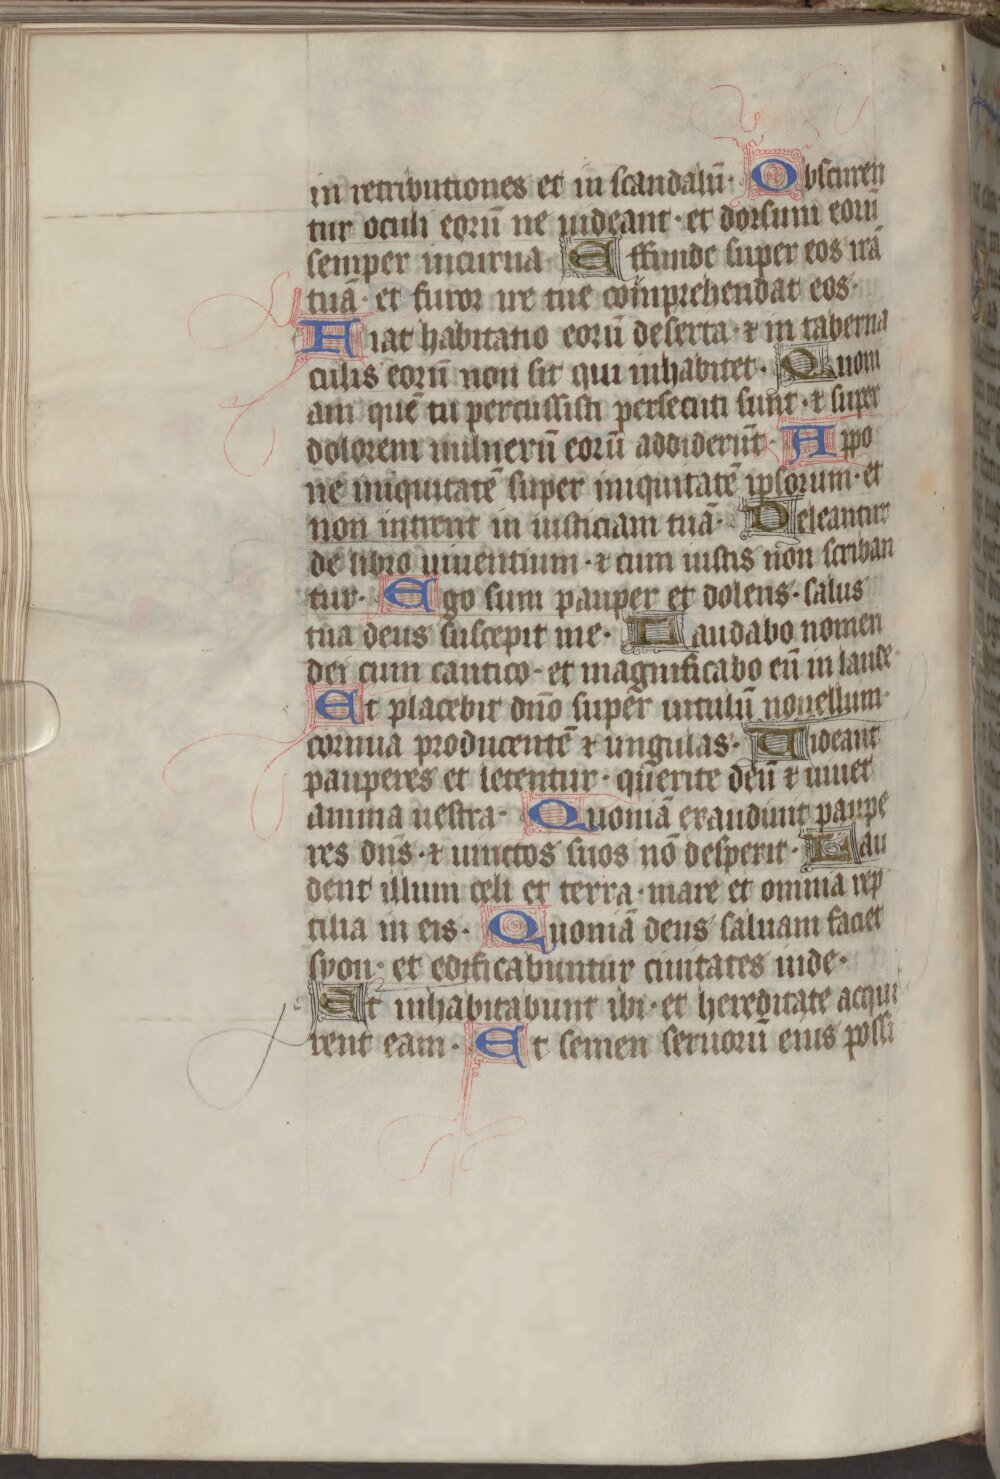 in retributiones et in scandalū· Obscuren
tur oculi eorū ne uideant· et dorsum eorū
semper incurua Effunde super eos irā
tuā· et furor ire tue comprehendat eos·
Fiat habitatio eorū deserta· ⁊ in taberna
culis eorū non sit qui inhabitet· Quoni
am quē tu percussisti persecuti sunt· ⁊ super
dolorem uulnerū eorū addiderūt· Appo
ne iniquitatē super iniquitatē ipsorum· et
non intrent in iusticiam tuā· Deleantur
de libro uiuentium· ⁊ cum iustis non scriban
tur· Ego sum pauper et dolens· salus
tua deus suscepit me· Laudabo nomen
dei cum cantico· et magnificabo eū in laude·
Et placebit dn̄o super uitulū nouellum·
cornua producentē ⁊ ungulas· Uideant
pauperes et letentur· querite deū ⁊ uiuet
anima uestra· Quoniā exaudiuit paupe
res dn̄s· ⁊ uinctos suos nō despexit· Lau
dent illum celi et terra· mare et omnia rep
tilia in eis· Quoniā deus saluam faciet
syon· et edificabuntur ciuitates iude·
Et inhabitabunt ibi· et hereditate acqui
rent eam· Et semen seruorū eius possi